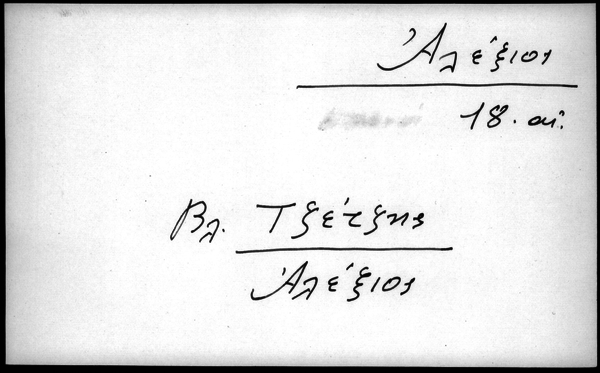 Ἀλέξιος
18. αἰ.
Βλ. Τζέτζης
Ἀλέξιος